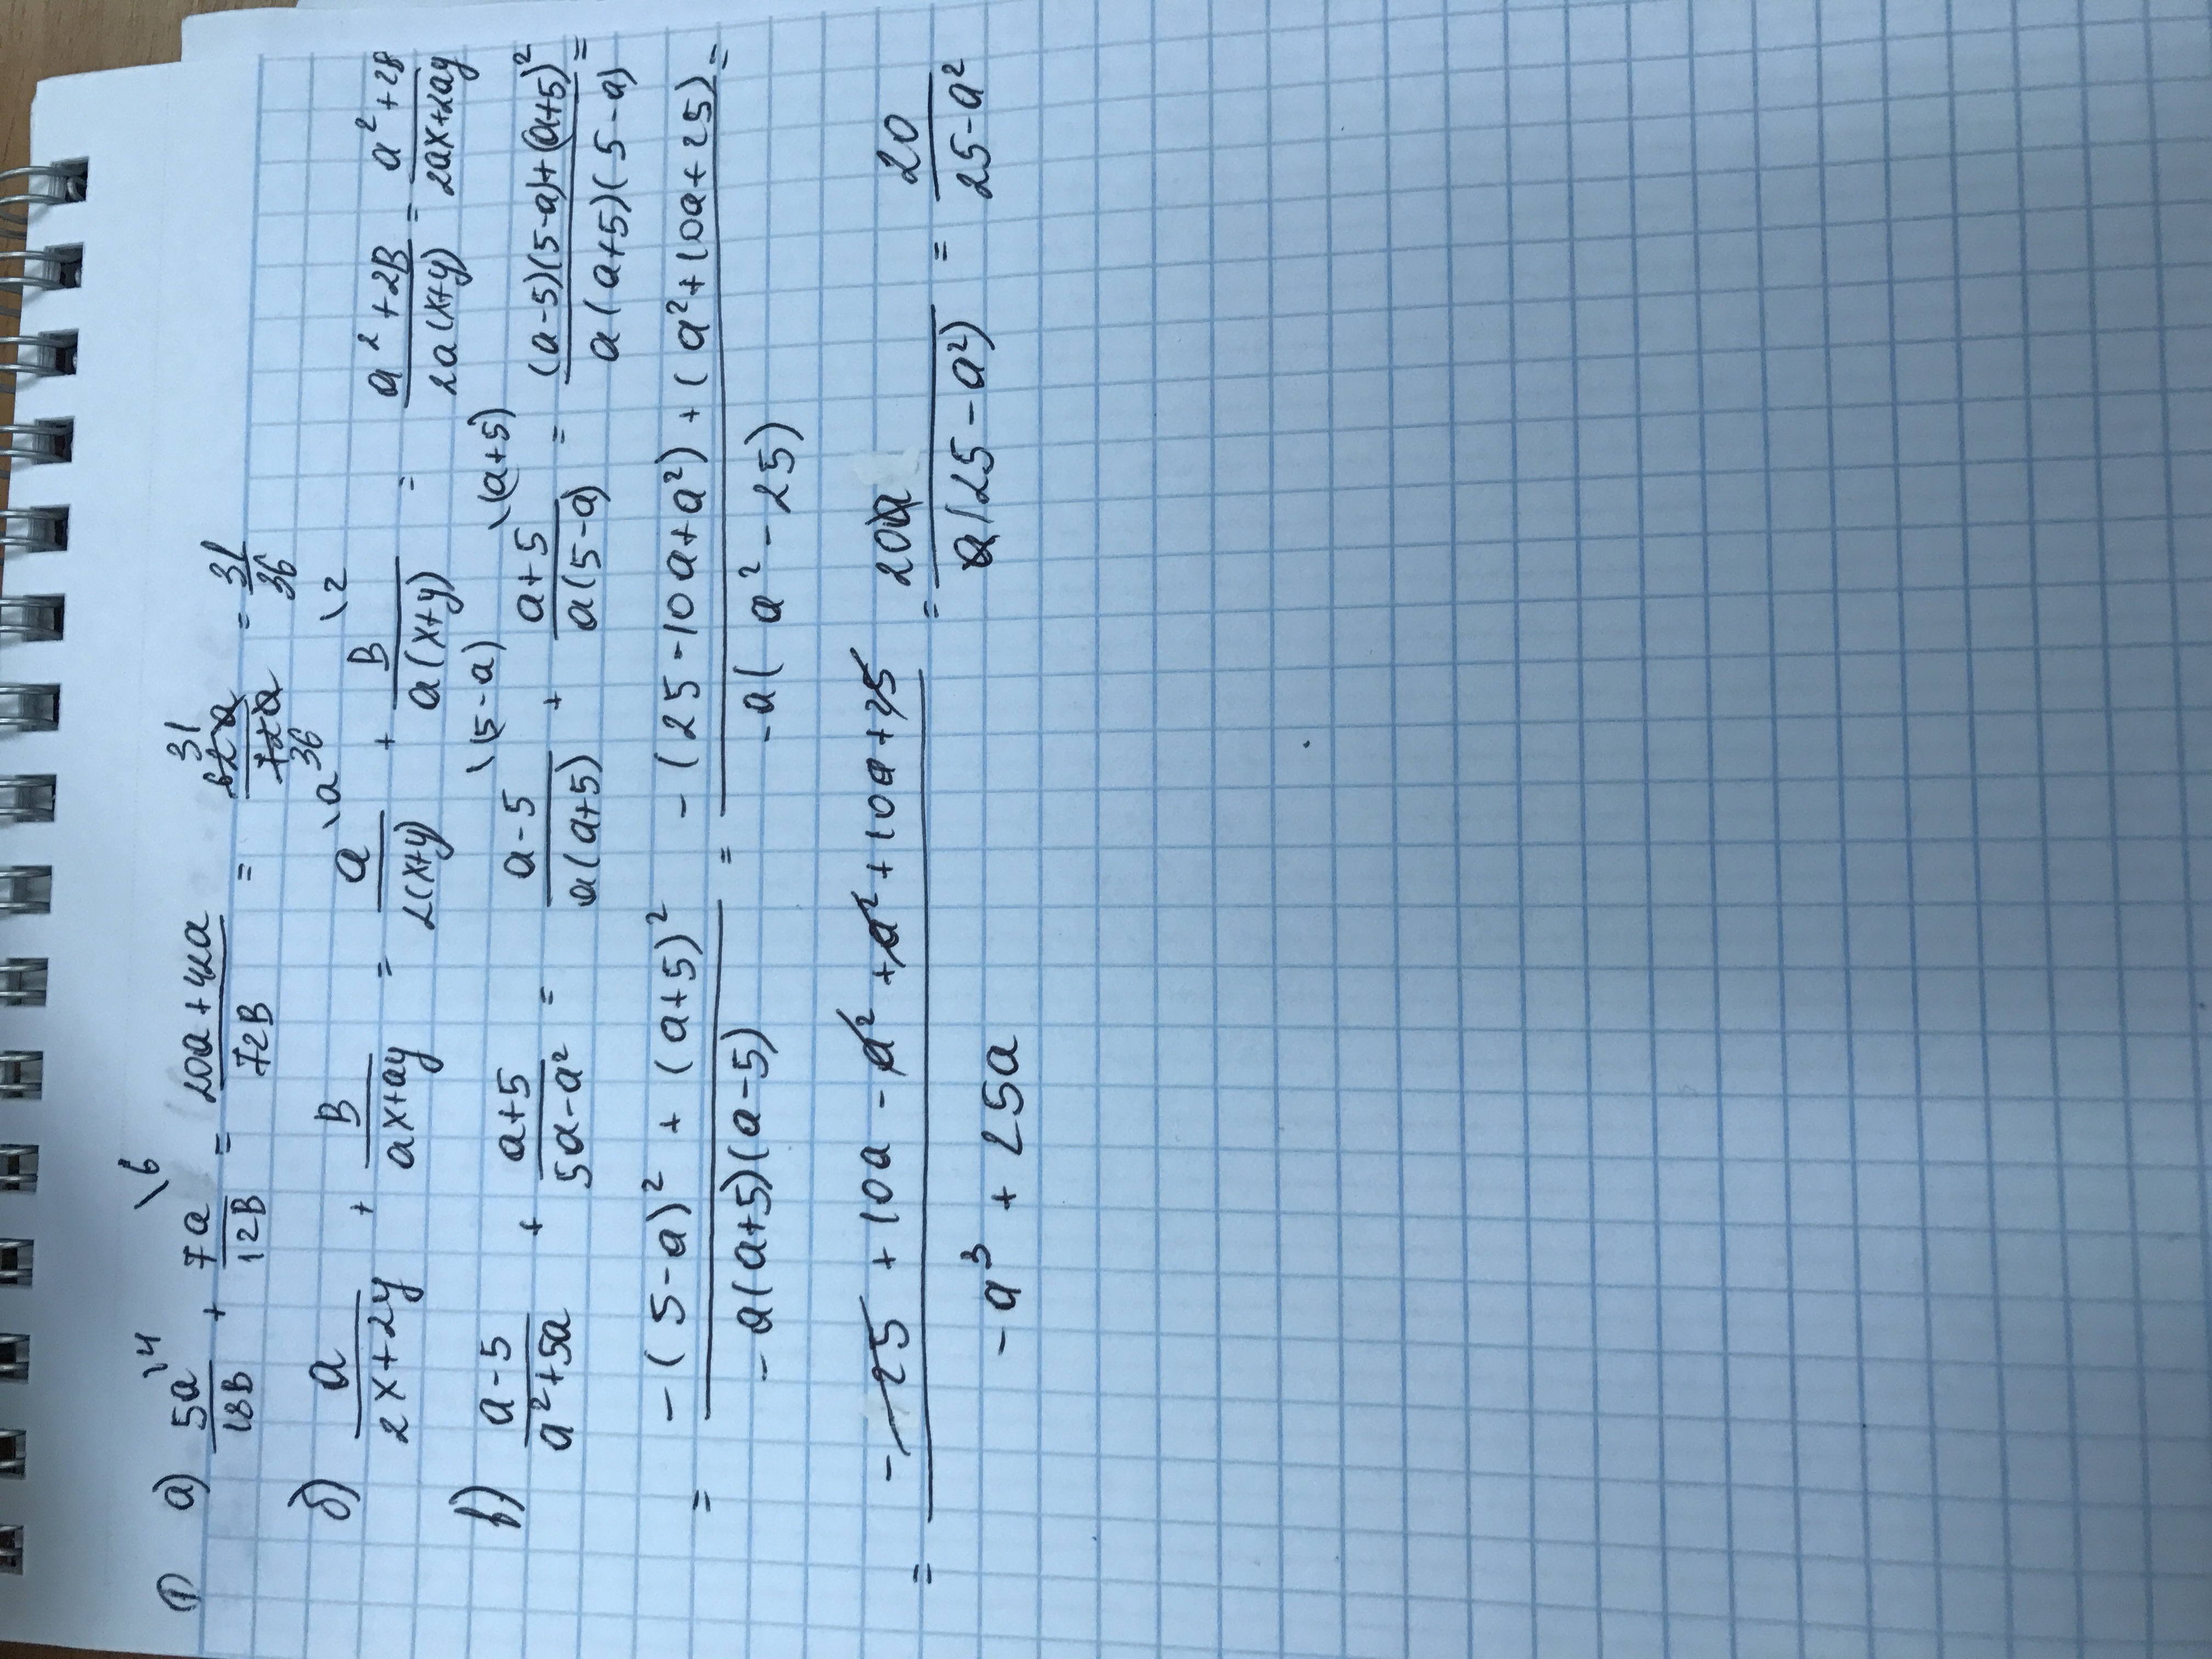 ① а) 5a\4/18B + 7a\6/12B = 20a+42a/72B = 62a/72a = 31/36
б) a/2x+2y + B/ax+ay = a\a/2(x+y) + B\2/a(x+y) = a²+2B/2a(x+y) = a²+2B/2ax+2ay
в) a-5/a²+5a + a+5/5a-a² = a-5\(5-a)/a(a+5) + a+5\(a+5)/a(5-a) = (a-5)(5-a)+(a+5)²/a(a+5)(5-a) =
= -(5-a)² + (a+5)²/-a(a+5)(a-5) = -(25-10a+a²)+(a²+10a+25)/-a(a²-25) =
= -25+10a-a²+a²+10a+25/-a³+25a = 20a/a(25-a²) = 20/25-a²